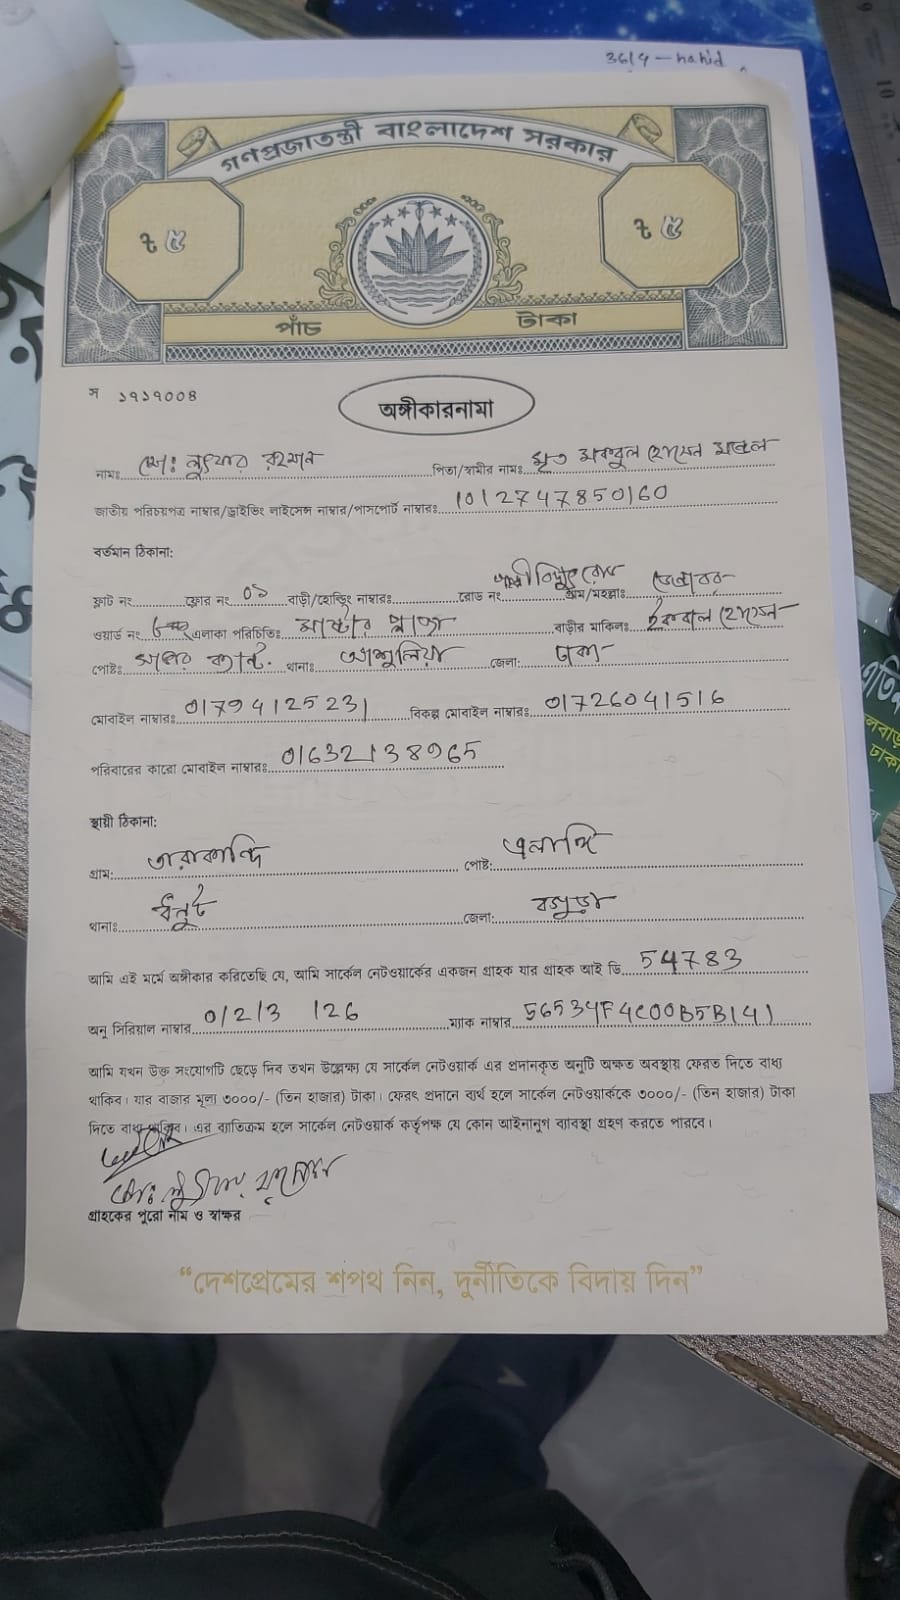 3614 - nahid
গণপ্রজাতন্ত্রী বাংলাদেশ সরকার
৳ ৫ ৳ ৫
পাঁচ টাকা
স ১৭১৭০০৪
অঙ্গীকারনামা
নামঃ মোঃ লুৎফার রহমান পিতা/স্বামীর নামঃ মৃত মকবুল হোসেন মন্ডল
জাতীয় পরিচয়পত্র নাম্বার/ড্রাইভিং লাইসেন্স নাম্বার/পাসপোর্ট নাম্বারঃ 1012747850160
বর্তমান ঠিকানা:
ফ্লাট নং ফ্লোর নং ০১ বাড়ী/হোল্ডিং নাম্বারঃ রোড নং পল্লী বিদ্যুৎ রোড গ্রাম/মহল্লাঃ
ওয়ার্ড নং এলাকা পরিচিতিঃ মাষ্টার প্লাজা বাড়ীর মালিকঃ ইকবাল হোসেন
পোষ্টঃ থানাঃ আশুলিয়া জেলা: ঢাকা
মোবাইল নাম্বারঃ 01794125231 বিকল্প মোবাইল নাম্বারঃ 01726041516
পরিবারের কারো মোবাইল নাম্বারঃ 01632138965
স্থায়ী ঠিকানা:
গ্রাম: তারাকান্দি পোষ্ট: এলাঙ্গি
থানাঃ ধনুট জেলা: বগুড়া
আমি এই মর্মে অঙ্গীকার করিতেছি যে, আমি সার্কেল নেটওয়ার্কের একজন গ্রাহক যার গ্রাহক আই ডি 54783
অনু সিরিয়াল নাম্বার 0/2/3 /26 ম্যাক নাম্বার 56534F4C00B5B141
আমি যখন উক্ত সংযোগটি ছেড়ে দিব তখন উল্লেক্ষ্য যে সার্কেল নেটওয়ার্ক এর প্রদানকৃত অনুটি অক্ষত অবস্থায় ফেরত দিতে বাধ্য
থাকিব। যার বাজার মূল্য ৩০০০/- (তিন হাজার) টাকা। ফেরৎ প্রদানে ব্যর্থ হলে সার্কেল নেটওয়ার্ককে ৩০০০/- (তিন হাজার) টাকা
দিতে বাধ্য থাকিব। এর ব্যতিক্রম হলে সার্কেল নেটওয়ার্ক কর্তৃপক্ষ যে কোন আইনানুগ ব্যবস্থা গ্রহণ করতে পারবে।
মোঃ লুৎফার রহমান
গ্রাহকের পুরো নাম ও স্বাক্ষর
“দেশপ্রেমের শপথ নিন, দুর্নীতিকে বিদায় দিন”